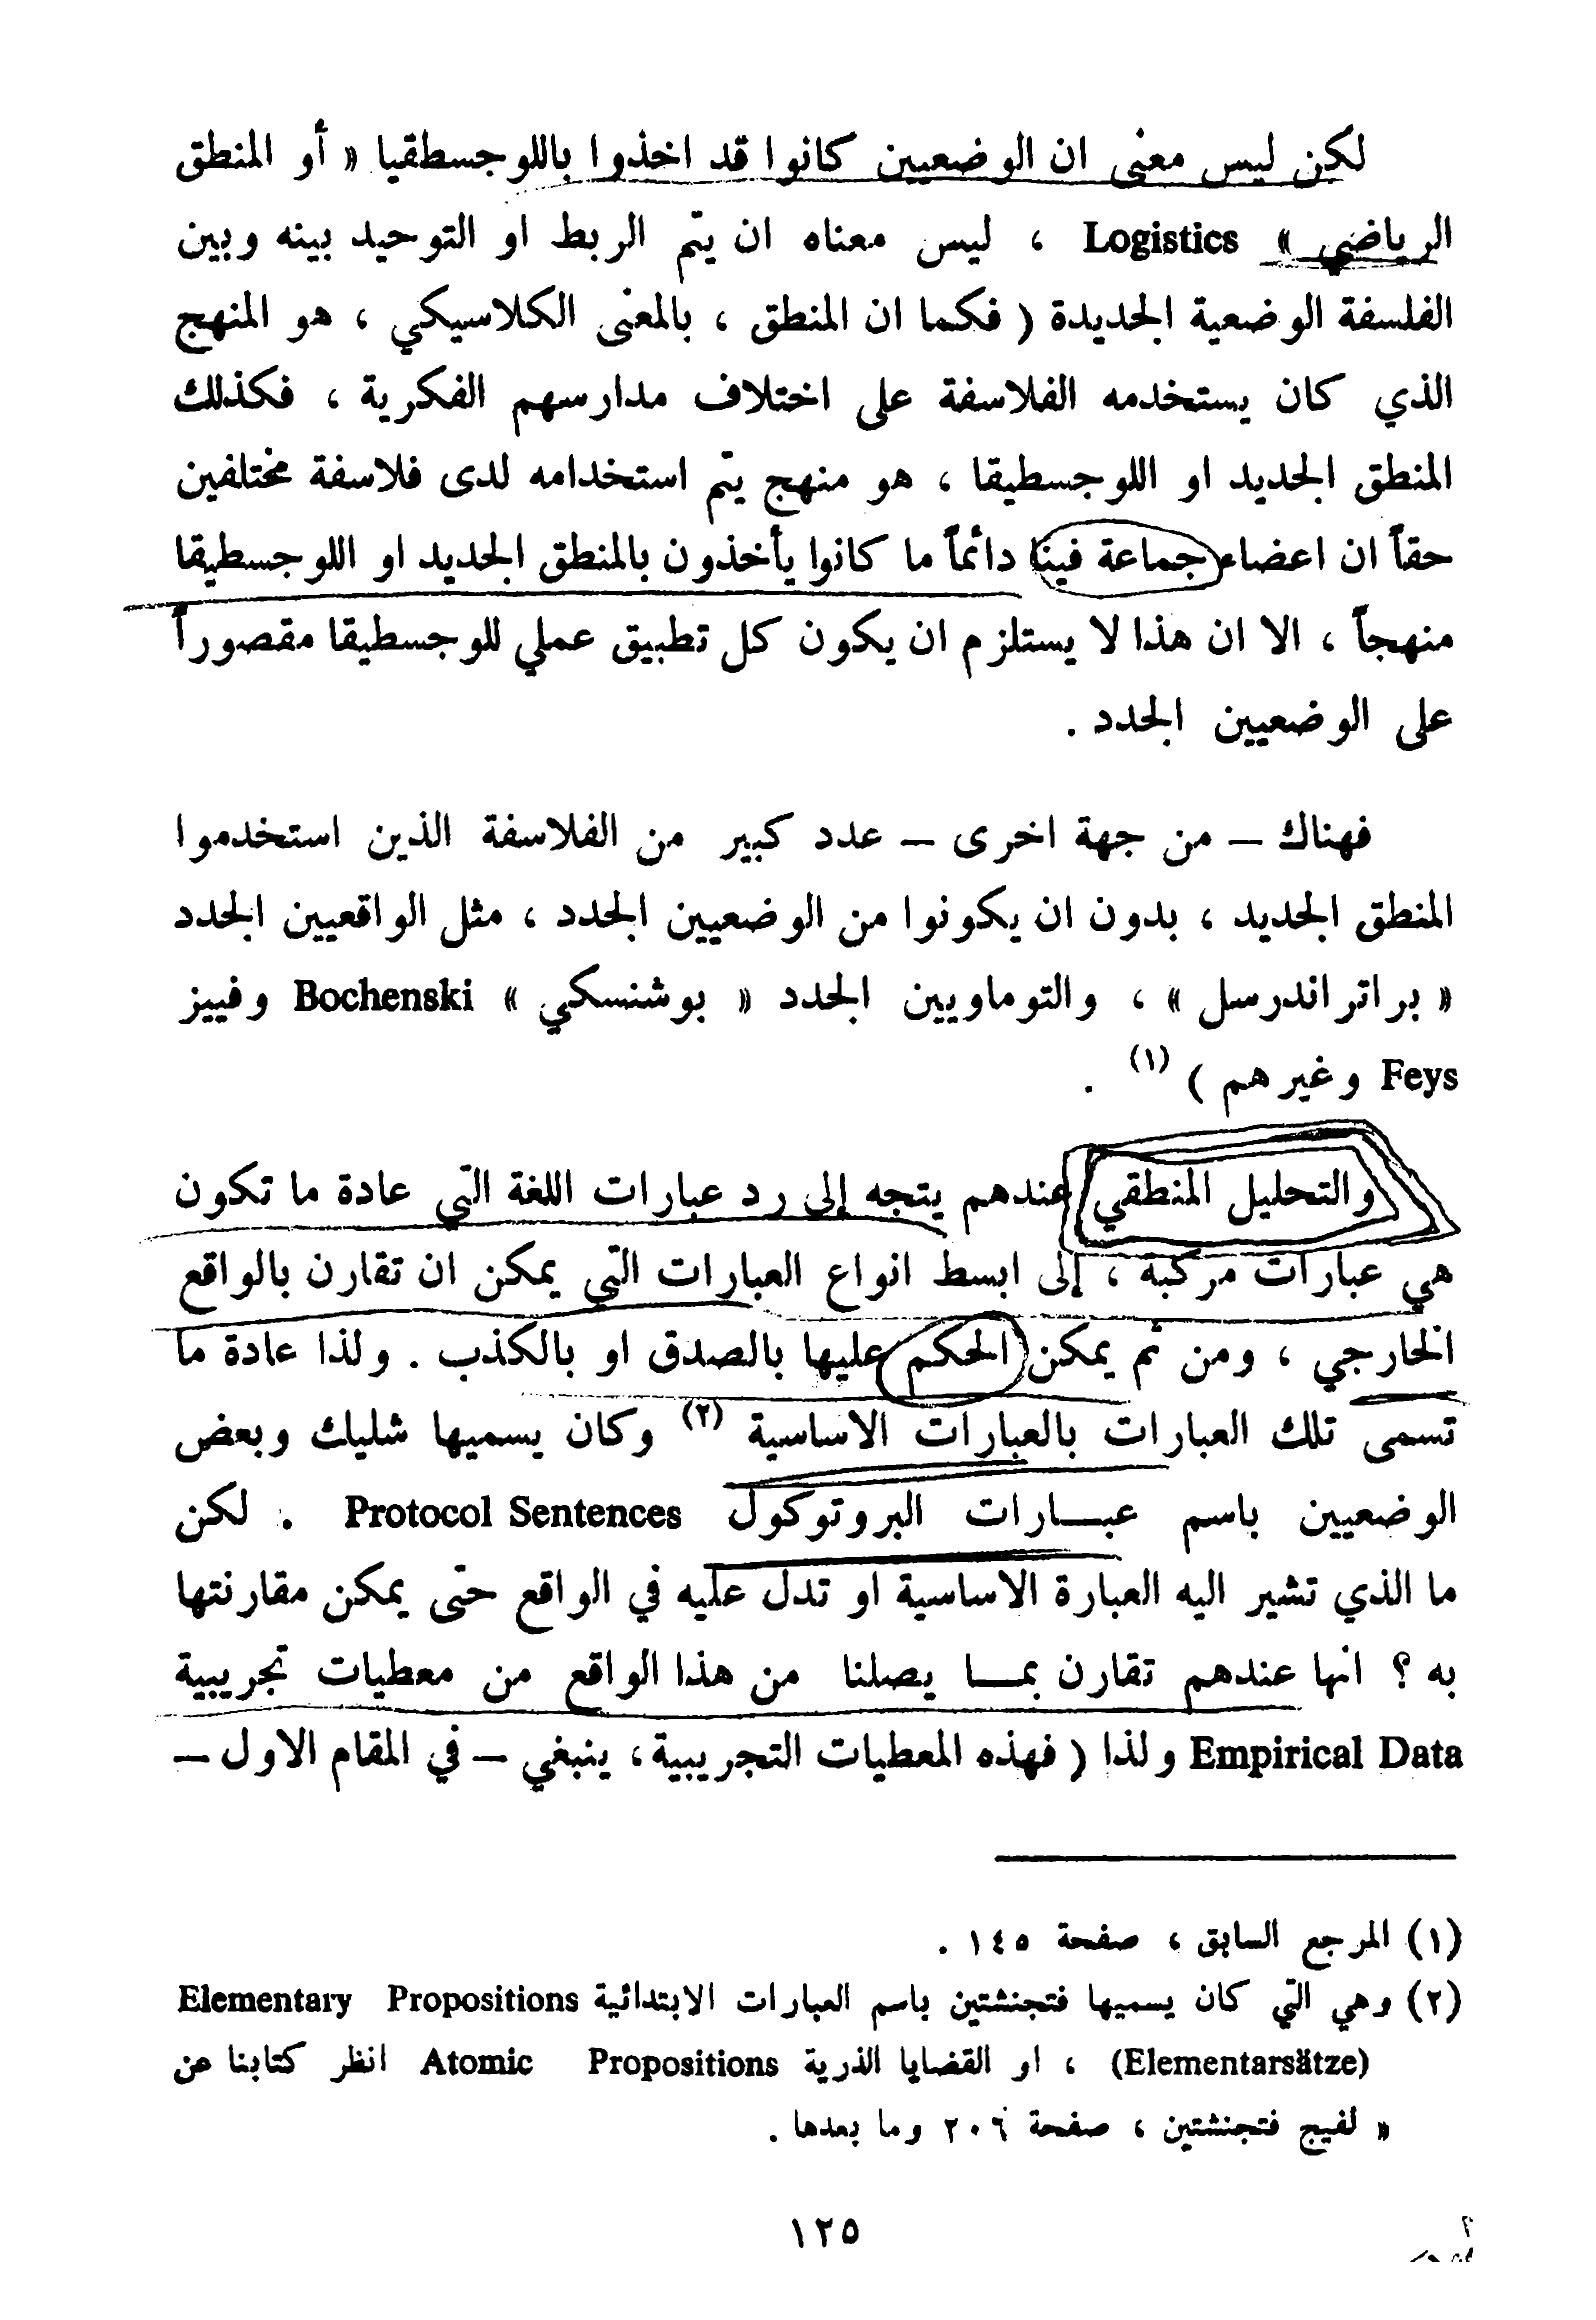 لكن ليس معنى ان الوضعيين كانوا قد اخذوا باللوجسطقيا « أو المنطق
الرياضي » Logistics ، ليس معناه ان يتم الربط او التوحيد بينه وبين
الفلسفة الوضعية الجديدة ( فكما ان المنطق ، بالمعنى الكلاسيكي ، هو المنهج
الذي كان يستخدمه الفلاسفة على اختلاف مدارسهم الفكرية ، فكذلك
المنطق الجديد او اللوجسطيقا ، هو منهج يتم استخدامه لدى فلاسفة مختلفين
حقاً ان اعضاء جماعة فينا دائماً ما كانوا يأخذون بالمنطق الجديد او اللوجسطيقا
منهجاً ، الا ان هذا لا يستلزم ان يكون كل تطبيق عملي للوجسطيقا مقصوراً
على الوضعيين الجدد .
فهناك – من جهة اخرى – عدد كبير من الفلاسفة الذين استخدموا
المنطق الجديد ، بدون ان يكونوا من الوضعيين الجدد ، مثل الواقعيين الجدد
« براتراندرسل » ، والتوماويين الجدد « بوشنسكي » Bochenski وفييز
Feys وغيرهم ) (١) .
والتحليل المنطقي عندهم يتجه إلى رد عبارات اللغة التي عادة ما تكون
هي عبارات مركبة ، إلى ابسط انواع العبارات التي يمكن ان تقارن بالواقع
الخارجي ، ومن ثم يمكن الحكم عليها بالصدق او بالكذب . ولذا عادة ما
تسمى تلك العبارات بالعبارات الاساسية (٢) وكان يسميها شليك وبعض
الوضعيين باسم عبــارات البروتوكول Protocol Sentences . لكن
ما الذي تشير اليه العبارة الاساسية او تدل عليه في الواقع حتى يمكن مقارنتها
به ؟ انها عندهم تقارن بمــا يصلنا من هذا الواقع من معطيات تجريبية
Empirical Data ولذا ( فهذه المعطيات التجريبية ، ينبغي – في المقام الاول –
(١) المرجع السابق ، صفحة ١٤٥ .
(٢) وهي التي كان يسميها فتجنشتين باسم العبارات الابتدائية Elementary Propositions
(Elementarsätze) ، او القضايا الذرية Atomic Propositions انظر كتابنا عن
« لفيج فتجنشتين ، صفحة ٢٠٦ وما بعدها .
١٢٥